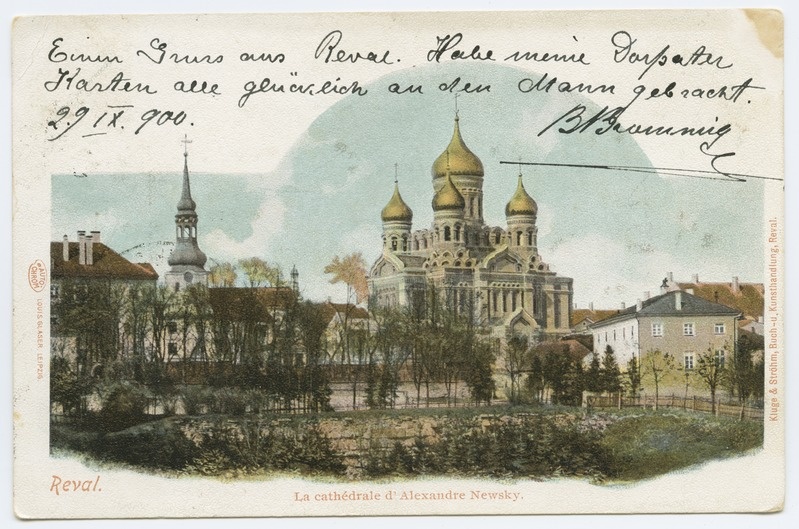 Einen Gruss aus Reval. Habe meine Dorpater
Karten alle glücklich an den Mann gebracht.
29 IX. 900.
AUTO
CHROM
LOUIS GLASER LEIPZIG.
Kluge & Ströhm, Buch- u. Kunsthandlung, Reval.
Reval.
La cathédrale d'Alexandre Newsky.